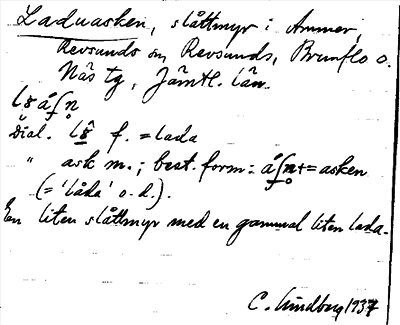 Laduasken, slåttmyr i Ammer,
Revsunds sn, Revsunds, Brunflo o.
Näs tg, Jämtl. län.
Dial. f. = lada
" ask m.; best. form: = asken
(= 'låda' o.d.).
En liten slåttmyr med en gammal liten lada.
C. Lindberg 1937